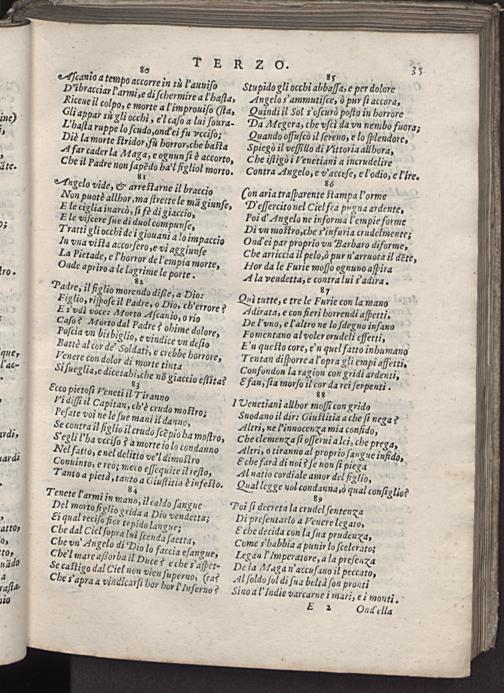 TERZO.
35
80
Ascanio a tempo accorre in sù l'auuiso
D'ibracciar l'armi, e di schermire a l'hasta,
Riceue il colpo, e morte a l'improuiso (sta,
Gli appar sù gli occhi, e'l caso a lui soura-
L'hasta ruppe lo scudo, ond'ei fu vcciso;
Diè la morte stridor, fù horror, che basta
A far cader la Maga, e ognun si è accorto,
Che il Padre non sapēdo hà'l figliol morto.
81
Angelo vide, & arrestarne il braccio
Non puotè allhor, ma strette le mā giunse,
E le ciglia inarcò, si fè di giaccio,
E le viscere sue di duol compunse,
Tratti gli occhi de i giouani a lo impaccio
In vna vista accorsero, e vi aggiunse
La Pietade, e l'horror de l'empia morte,
Onde apriro a le lagrime le porte.
82
Padre, il figlio morendo disse, a Dio:
Figlio, rispose il Padre, o Dio, ch'errore?
E s'vdì voce: Morto Ascanio, o rio
Caso? Morto dal Padre? ohime dolore,
Poscia vn bisbiglio, e vindice vn desio
Battè al cor de' Soldati, e crebbe horrore,
Venere con dolor di morte tinta
Si sueglia, e dice: ahi, che nō giaccio estīta?
83
Ecco pietosi Veneti il Tiranno
Vi disse il Capitan, ch'è crudo mostro;
Pesate voi ne le sue mani il danno,
Se contra il figlio il crudo scēpio ha mostro,
S'egli l'ha vcciso? a morte io lo condanno
Nel fatto, e nel delitto ve'l dimostro
Conuinto, e reo; meco essequite il resto,
Tanto a pietà, tanto a Giustitia è infesto.
84
Tenete l'armi in mano, il caldo sangue
Del morto figlio grida a Dio vendetta;
Ei qual reciso fior tepido langue;
Che dal Ciel sopra lui scenda saetta,
Che vn' Angelo di Dio lo faccia esangue,
Che'l mare assorba il Duce? e che s'aspet-
Se castigo dal Ciel non vien superno, (ta?
Che s'apra a vindicarsi hor hor l'Inferno?
85
Stupido gli occhi abbassa, e per dolore
Angelo s'ammutisce, ò pur si accora,
Quindi il Sol s'oscurò posto in horrore
Da Megera, che vscì da vn nembo fuora;
Quando offuscò il sereno, e lo splendore,
Spiegò il vessillo di Vittoria allhora,
Che istigò i Venetiani a incrudelire
Contra Angelo, e v'accese, e l'odio, e l'ire.
86
Con aria trasparente stampa l'orme
D'essercito nel Ciel fra pugna ardente,
Poi d'Angelo ne informa l'empie forme
Di vn mostro, che s'infuria crudelmente;
Ond'ei par proprio vn Barbaro diforme,
Che arriccia il pelo, ò pur n'arruota il dēte,
Hor da le Furie mosso ognuno aspira
A la vendetta, e contra lui s'adira.
87
Quì tutte, e tre le Furie con la mano
Adirata, e con fieri horrendi aspetti,
De l'vno, e l'altro ne lo sdegno insano
Fomentano al voler crudeli effetti,
E'n questo core, e'n quel fatto inhumano
Tentan disporre a l'opra gli empi affetti,
Confondon la ragion con gridi ardenti,
E fan, sia morso il cor da rei serpenti.
88
I Venetiani allhor mossi con grido
Snodano il dir: Giustitia a che si nega?
Altri, ne l'innocenza mia confido,
Che clemenza si osserui alcì, che prega,
Altri, o tiranno al proprio sangue infido,
E che farà di noi? se non si piega
Al natio cordiale amor del figlio,
Qual legge nol condanna, ò qual consiglio?
89
Poi si decreta la crudel sentenza
Di presentarlo a Venere legato,
E che decida con la sua prudenza,
Come s'habbia a punir lo scelerato;
Legan l'Imperatore, a la presenza
De la Maga n'accusano il peccato,
Al soldo sol di sua beltà son pronti
Sino a l'Indie varcarne i mari, e i monti.
E 2
Ond'ella